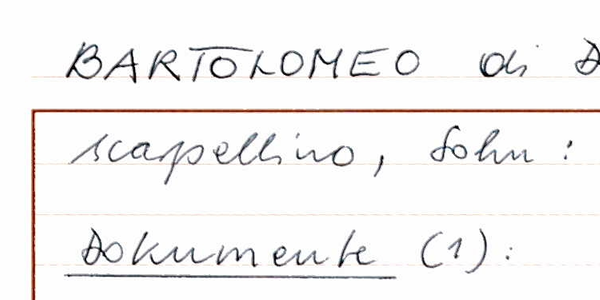 BARTOLOMEO di
scarpellino, Sohn:
Dokumente (1):